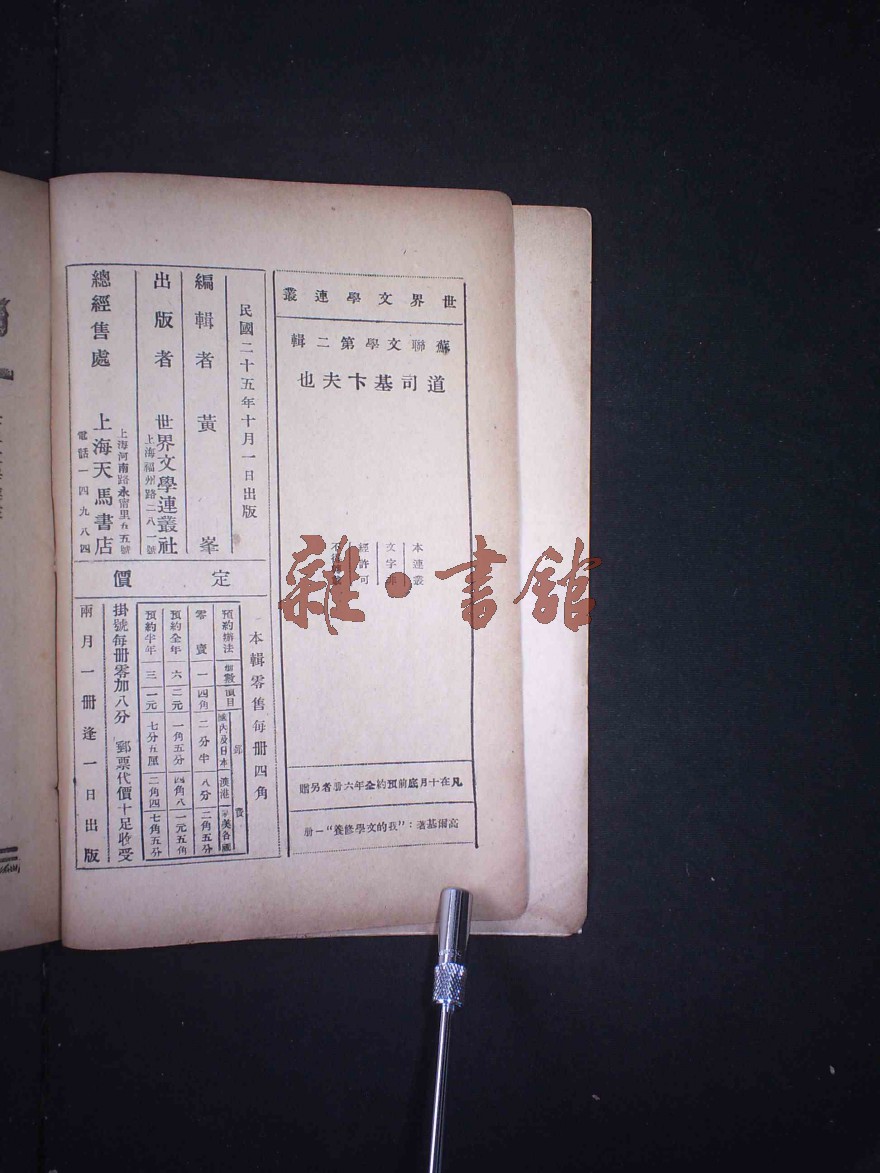 世界文學連叢
蘇聯文學第二輯
道司基卞夫也
本連叢
文字
經許可
不
凡在十月底前預約全年六冊者另贈
高爾基著：“我的文學修養”一冊
民國二十五年十月一日出版
編輯者 黃峯
出版者 世界文學連叢社
上海福州路二八一號
總經售處 上海天馬書店
上海河南路永甯里五號
電話一四九八四
定價
本輯零售每冊四角
預約辦法 冊數 價目 郵費 國內及日本 澳港 歐美各國
零賣 一 四角 二分半 八分 二角五分
預約全年 六 二元 一角五分 四角八 一元五角
預約半年 三 一元 七分五厘 二角四 七角五分
掛號每冊零加八分 郵票代價十足收受
兩月一冊逢一日出版
雜·書館